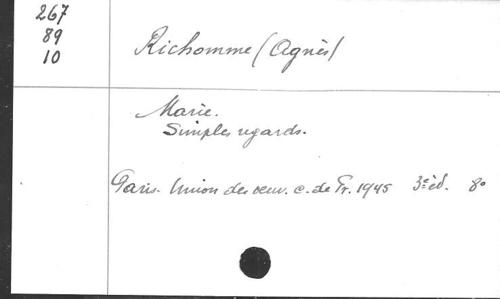 267
89
10
Richomme (Agnès)
Marie.
Simples regards.
Paris. Union des oeuv. c. de Fr. 1945 3e éd. 8°